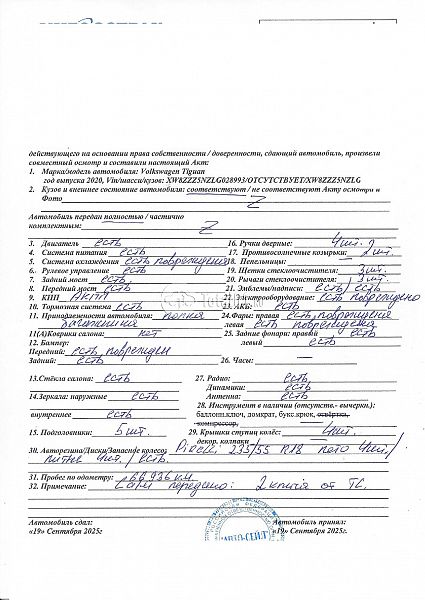 действующего на основании права собственности / доверенности, сдающий автомобиль, произвели
совместный осмотр и составили настоящий Акт:
1. Марка/модель автомобиля: Volkswagen Tiguan
год выпуска 2020, Vin/шасси/кузов: XW8ZZZ5NZLG028993/ОТСУТСТВУЕТ/XW8ZZZ5NZLG
2. Кузов и внешнее состояние автомобиля: соответствуют / не соответствуют Акту осмотра и
Фото Z
Автомобиль передан полностью / частично
комплектным: Z
3. Двигатель есть 16. Ручки дверные: 4шт.
4. Система питания есть 17. Противосолнечные козырьки: 2шт.
5. Система охлаждения есть повреждения 18. Пепельницы:
6. Рулевое управление есть 19. Щетки стеклоочистителя: 3шт.
7. Задний мост есть 20. Рычаги стеклоочистителя: 3шт.
8. Передний мост есть 21. Эмблемы/надписи: есть/есть
9. КПП АКПП 22. Электрооборудование: есть повреждено
10. Тормозная система есть 23. АКБ: есть
11. Принадлежности автомобиля: 24. Фары: правая есть, повреждения
левая есть повреждена
11(А) Коврики салона: нет 25. Задние фонари: правый есть
12. Бампер: левый есть
Передний: есть, поврежден
Задний: есть 26. Часы:
13. Стёкла салона: есть 27. Радио: есть
Динамики: есть
14. Зеркала: наружные есть Антенна: есть
28. Инструмент в наличии (отсутств.- вычеркн.):
внутреннее есть баллонн.ключ, домкрат, букс.крюк, отвёртка,
компрессор,
15. Подголовники: 5шт. 29. Крышки ступиц колёс: 4шт.
декор. колпаки
30. Авторезина/Диски/Запасное колесо: Pirelli 235/55 R18 лето 4шт./
литые 4шт. / есть
31. Пробег по одометру: 66936 км
32. Примечание: Сами передано: 2 ключа от ТС.
Автомобиль сдал: Автомобиль принял:
«19» Сентября 2025г. «19» Сентября 2025г.